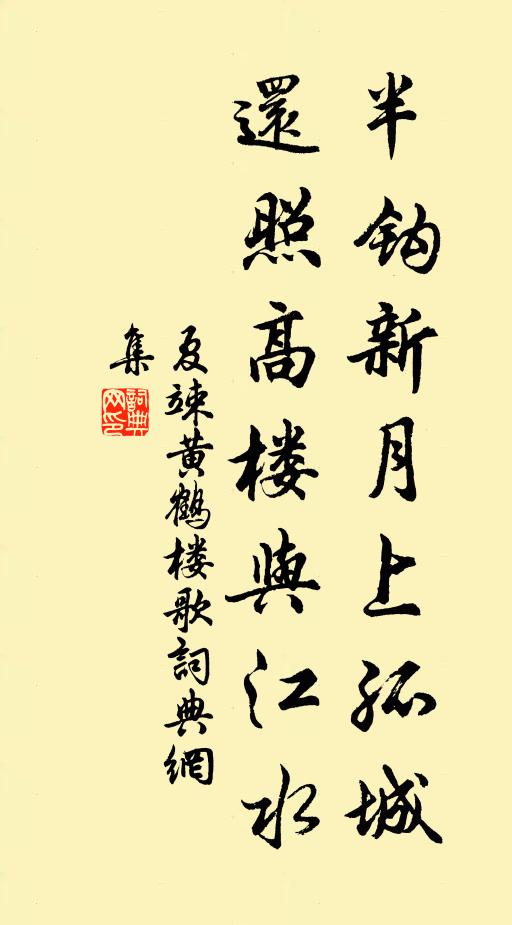 半鈎新月上孤城
還照高楼與江水
夏竦黄鶴楼歌詞典網
集
詞典
网印